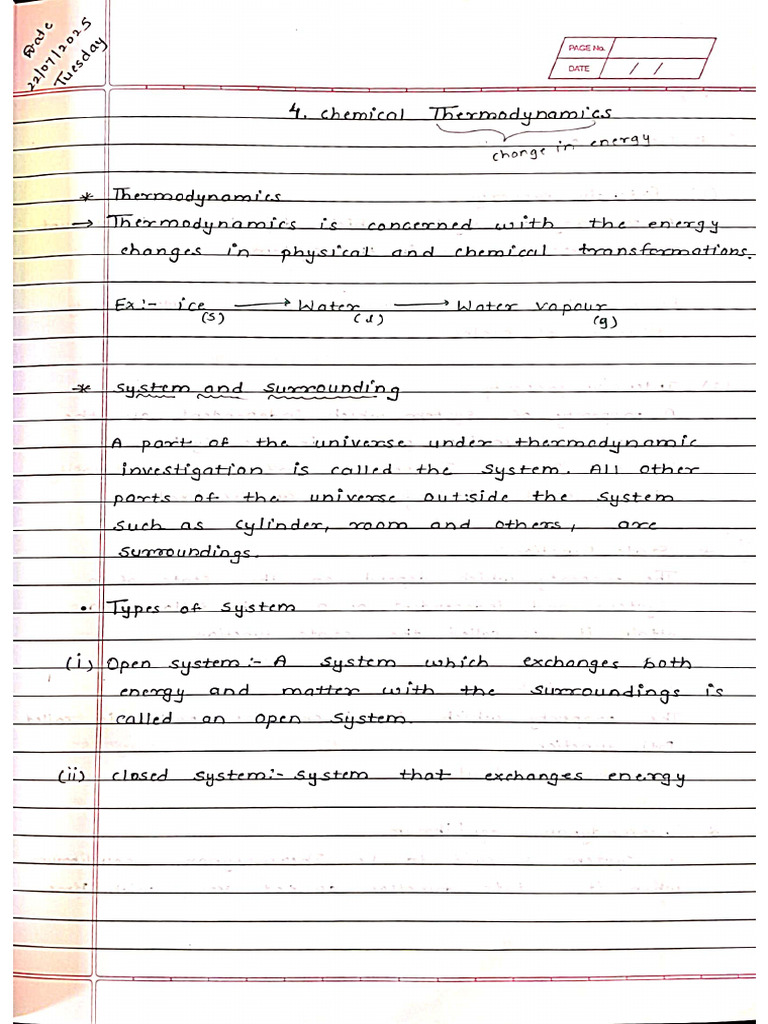 Date
22/07/2025
Tuesday
PAGE No.
DATE / /
4. Chemical Thermodynamics
change in energy
* Thermodynamics
→ Thermodynamics is concerned with the energy
changes in physical and chemical transformations.
Ex:- ice(s) → Water(l) → Water vapour(g)
* System and Surrounding
A part of the universe under thermodynamic
investigation is called the System. All other
parts of the universe outside the System
such as cylinder, room and others, are
Surroundings.
• Types of System
(i) Open system:- A system which exchanges both
energy and matter with the surroundings is
called an open System.
(ii) closed system:- System that exchanges energy